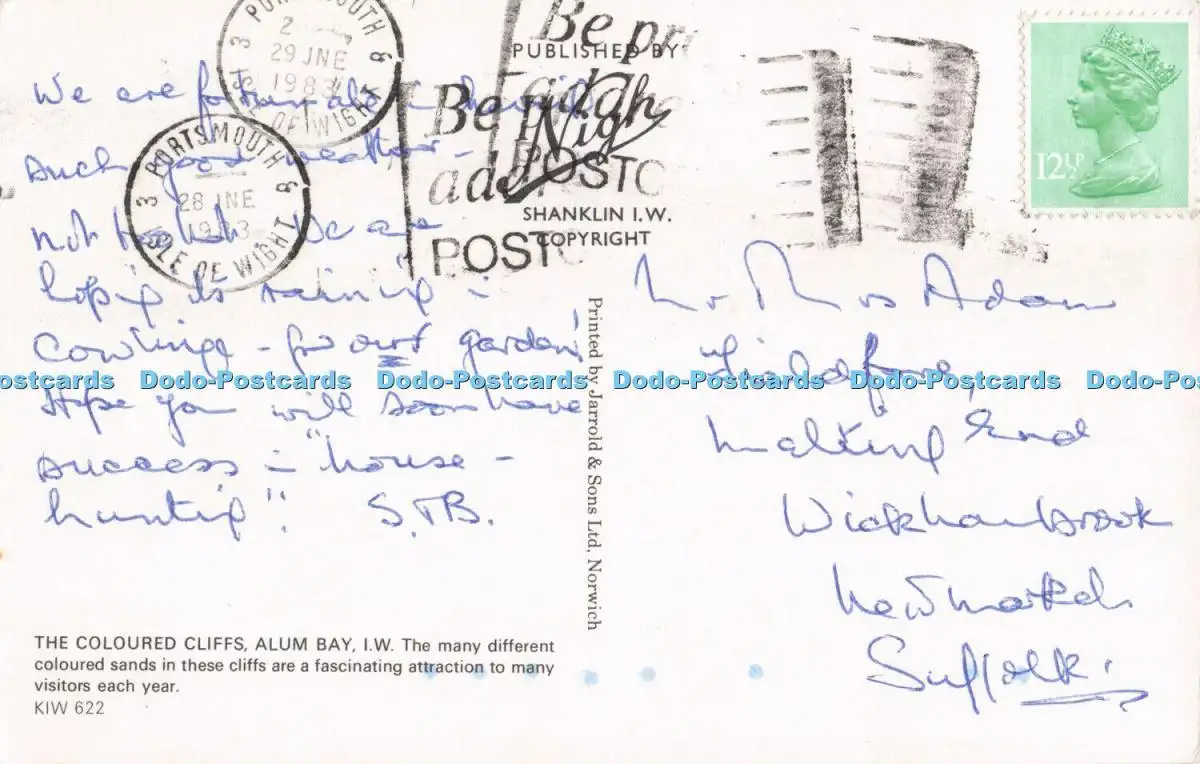 3 PORTSMOUTH &
2
29 JNE
1983
OF WIGHT
3 PORTSMOUTH &
28 JNE
1983
ISLE OF WIGHT
Be pr
Be
add
POSTC
POSTC
PUBLISHED BY
Nigh
SHANKLIN I.W.
COPYRIGHT
12½P
We are fortunate
such good weather -
not too hot. We are
hoping its raining in
Cowlinge - for our garden!
Hope you will soon have
success in "house -
hunting". S.&B.
Mr & Mrs Adam
Malting End
Wickhambrook
Newmarket
Suffolk.
Printed by Jarrold & Sons Ltd, Norwich
THE COLOURED CLIFFS, ALUM BAY, I.W. The many different
coloured sands in these cliffs are a fascinating attraction to many
visitors each year.
KIW 622
ostcards Dodo-Postcards Dodo-Postcards Dodo-Postcards Dodo-Postcards Dodo-Postc